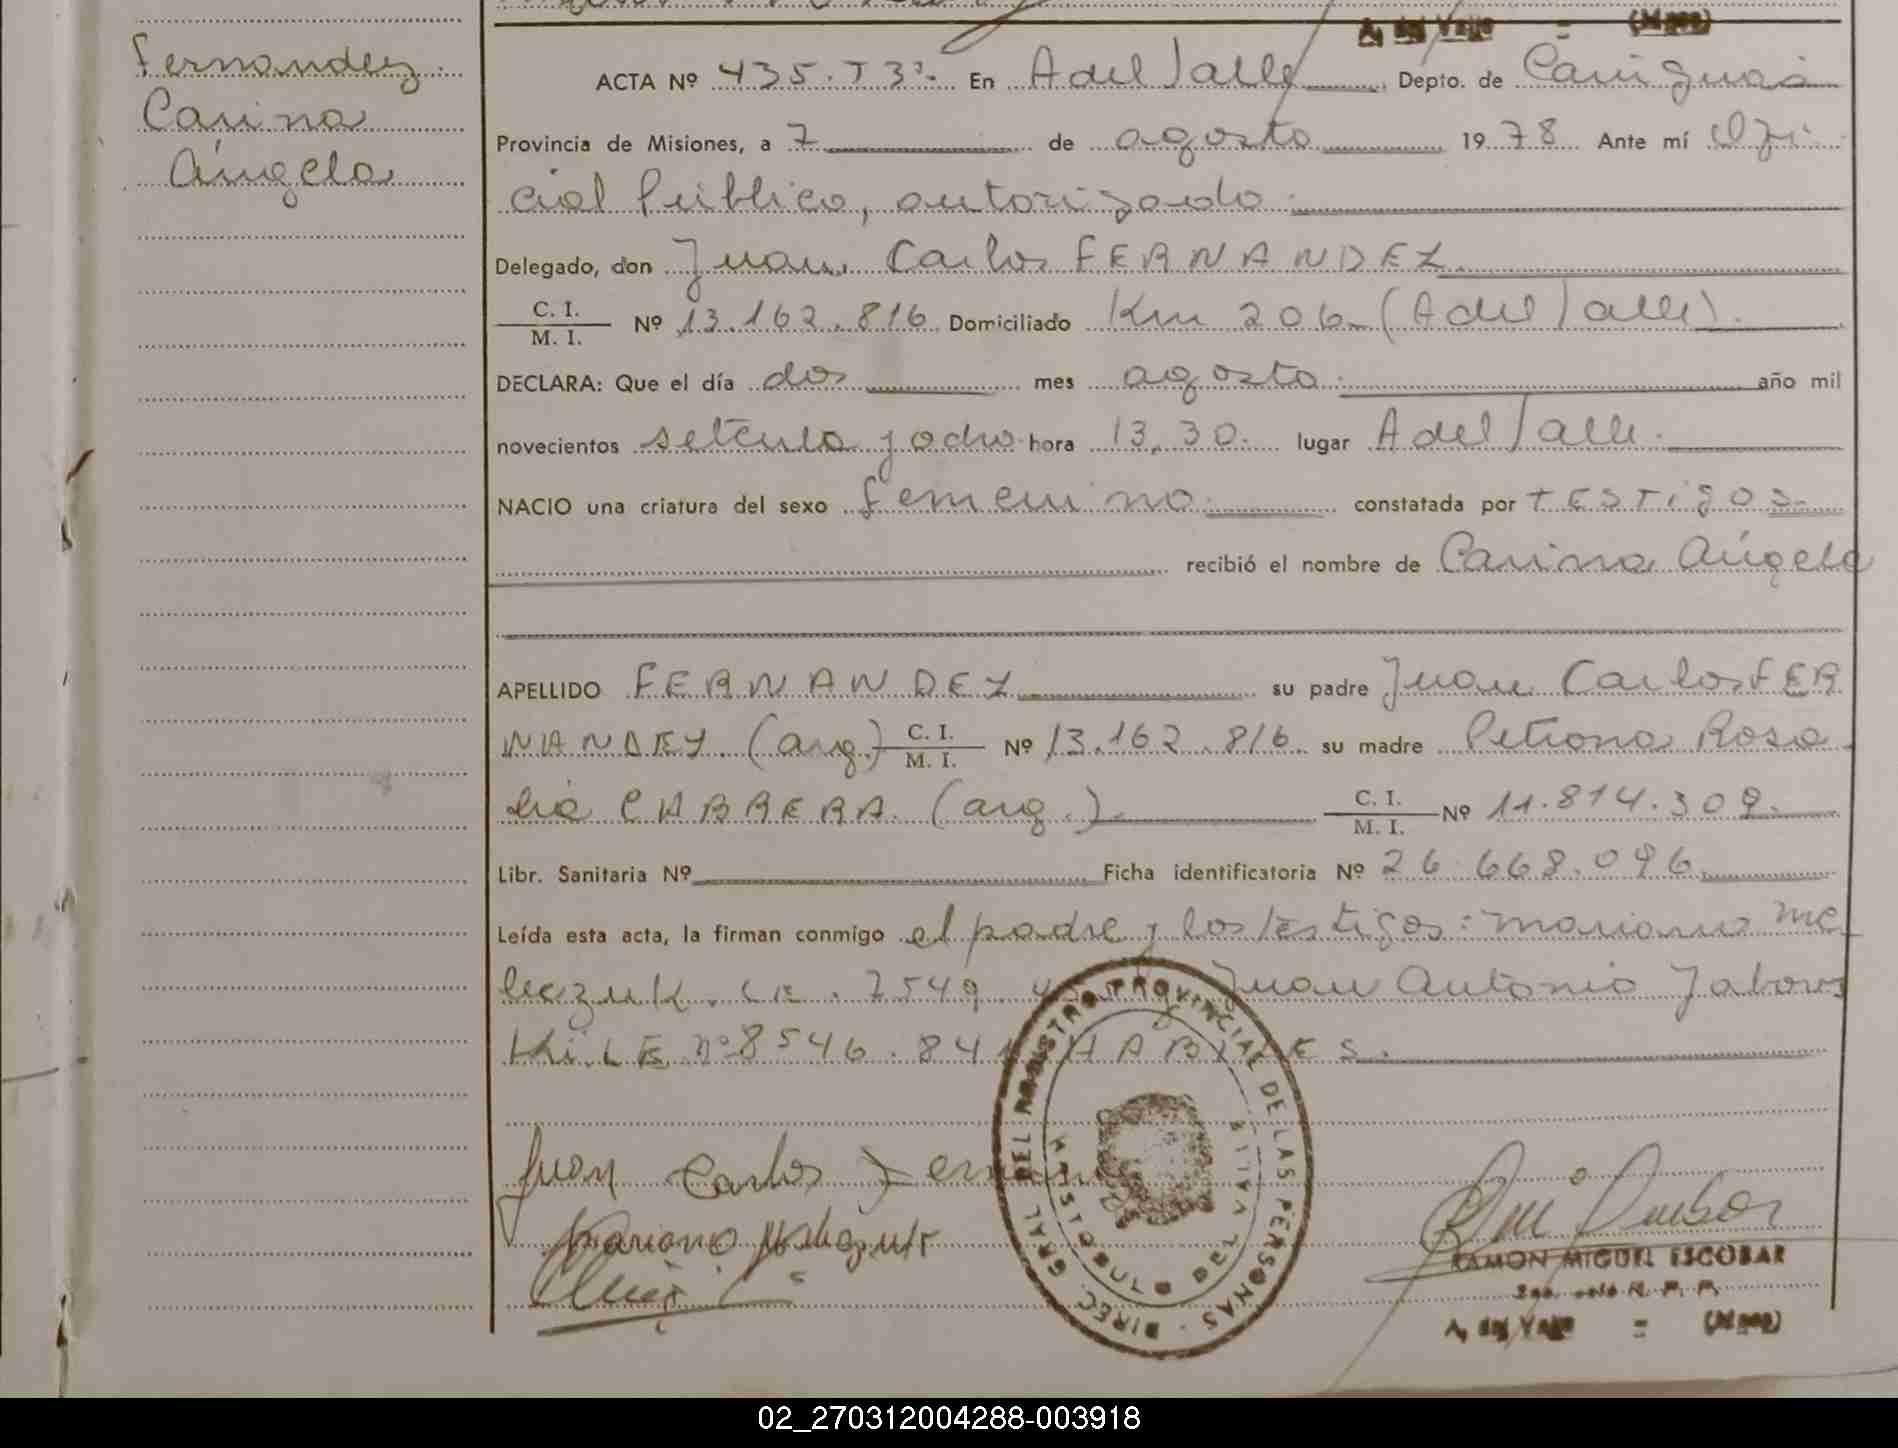 A. del Valle = (Mnes)
Fernandez
Carina
Angela
ACTA Nº 435. T 3º. En A del Valle Depto. de Cainguás
Provincia de Misiones, a 7 de agosto 1978 Ante mí Ofi
cial Público, autorizado
Delegado, don Juan Carlos FERNANDEZ
C. I.
M. I. Nº 13.162.816 Domiciliado Km 206 (A del Valle).
DECLARA: Que el día dos mes agosto año mil
novecientos setenta y ocho hora 13,30 lugar A del Valle.
NACIO una criatura del sexo femenino constatada por TESTigos
recibió el nombre de Carina Angela
APELLIDO FERNANDEZ su padre Juan Carlos FER
NANDEZ (arg.) C. I. M. I. Nº 13.162.816 su madre Petrona Rosa
lia CABRERA (arg.) C. I. M. I. Nº 11.814.309
Libr. Sanitaria Nº Ficha identificatoria Nº 26.668.096
Leída esta acta, la firman conmigo el padre y los testigos: Mariano Me
leczuk. LE. 7549. Juan Antonio Jabows
Ki LE Nº 8546.841 HABILES.
DIREC. GRAL. DEL REGISTRO PROVINCIAL DE LAS PERSONAS
ARISTOBULO DEL VALLE
Juan Carlos Fernan
Mariano
RAMON MIGUEL ESCOBAR
R. P. P.
A. del Valle = (Mnes)
02_270312004288-003918